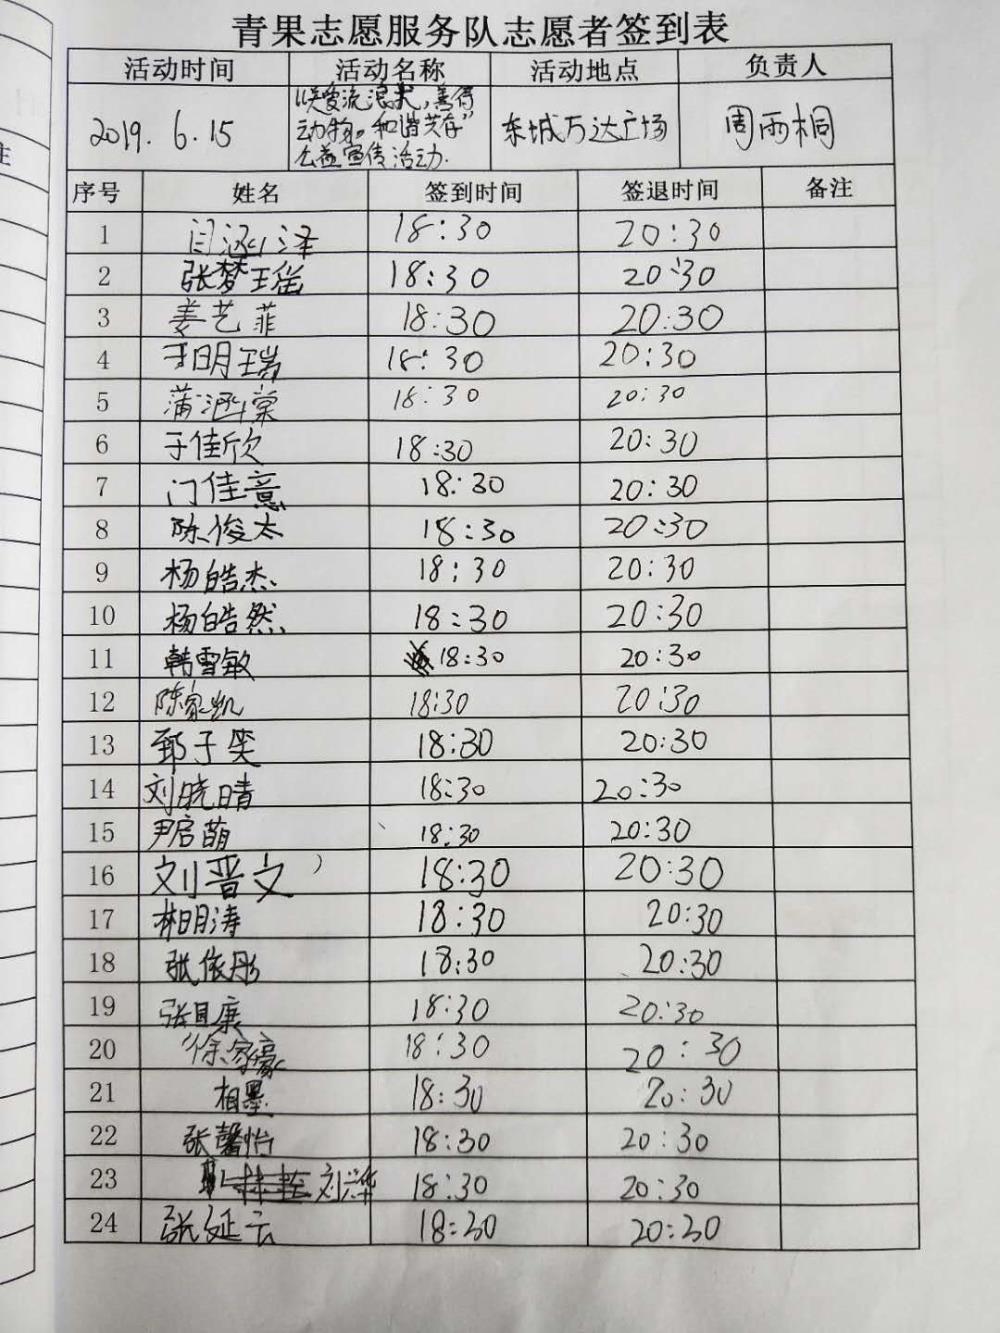 青果志愿服务队志愿者签到表
活动时间 活动名称 活动地点 负责人
2019. 6.15 "关爱流浪犬,善待动物。和谐共存"公益宣传活动. 东城万达广场 周雨桐
序号 姓名 签到时间 签退时间 备注
1 闫涵泽 18:30 20:30
2 张梦瑶 18:30 20:30
3 姜艺菲 18:30 20:30
4 明瑞 18:30 20:30
5 蒲涵棠 18:30 20:30
6 于佳欣 18:30 20:30
7 门佳意 18:30 20:30
8 陈俊太 18:30 20:30
9 杨皓杰 18:30 20:30
10 杨皓然 18:30 20:30
11 韩雪敏 18:30 20:30
12 陈家凯 18:30 20:30
13 郅子笑 18:30 20:30
14 刘晓晴 18:30 20:30
15 尹启萌 18:30 20:30
16 刘晋文 18:30 20:30
17 明涛 18:30 20:30
18 张依彤 18:30 20:30
19 张 康 18:30 20:30
20 徐家豪 18:30 20:30
21 相墨 18:30 20:30
22 张馨怡 18:30 20:30
23 刘兴华 18:30 20:30
24 张延云 18:30 20:30